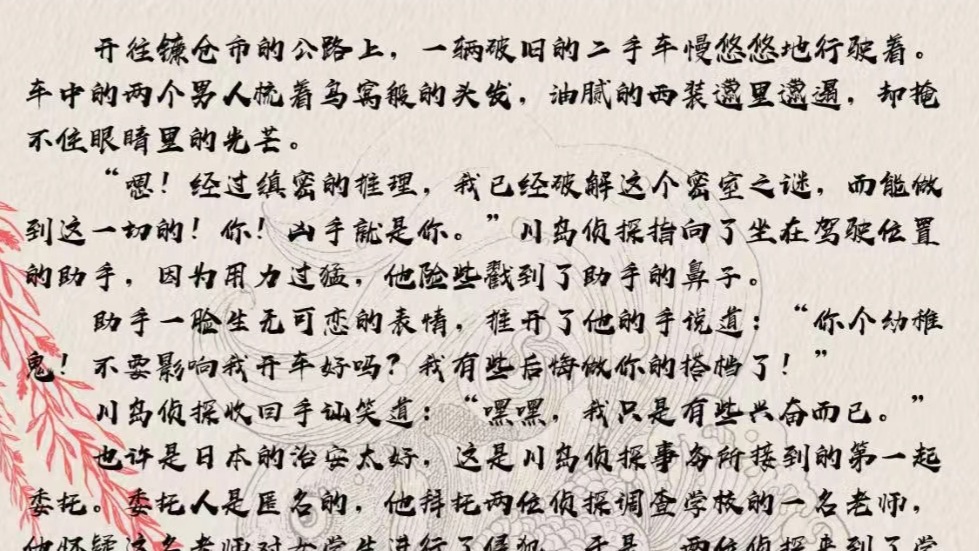 开往镰仓市的公路上，一辆破旧的二手车慢悠悠地行驶着。
车中的两个男人梳着鸟窝般的头发，油腻的西装邋里邋遢，却掩
不住眼睛里的光芒。
“嗯！经过缜密的推理，我已经破解这个密室之谜，而能做
到这一切的！你！凶手就是你。”川岛侦探指向了坐在驾驶位置
的助手，因为用力过猛，他险些戳到了助手的鼻子。
助手一脸生无可恋的表情，推开了他的手说道：“你个幼稚
鬼！不要影响我开车好吗？我有些后悔做你的搭档了！”
川岛侦探收回手讪笑道：“嘿嘿，我只是有些兴奋而已。”
也许是日本的治安太好，这是川岛侦探事务所接到的第一起
委托。委托人是匿名的，他拜托两位侦探调查学校的一名老师，
他怀疑这名老师对女学生进行了侵犯。于是，两位侦探来到了学